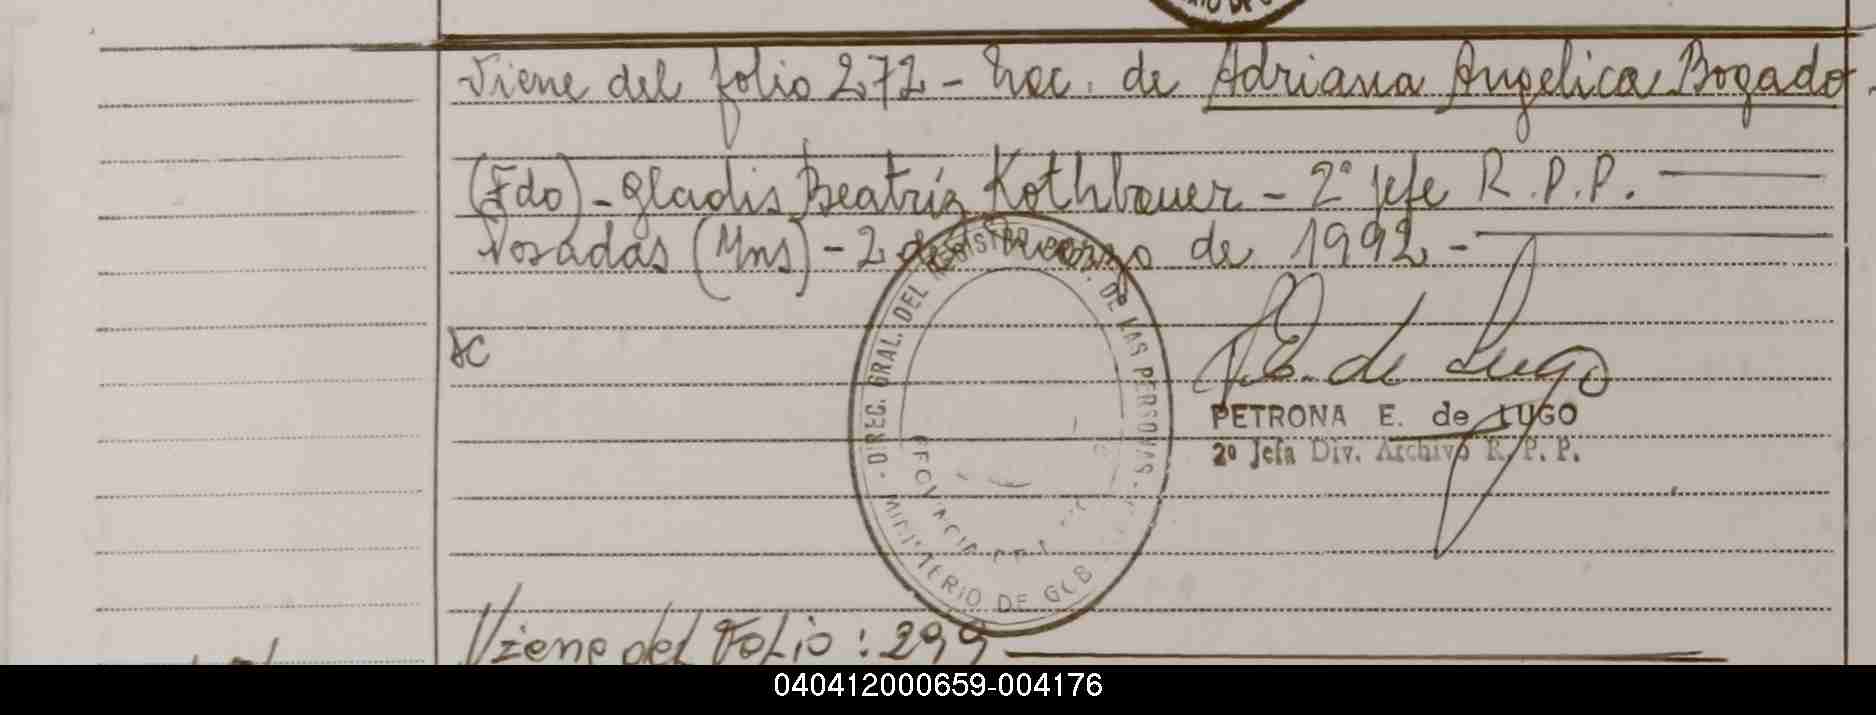 Viene del folio 272 - Nac. de Adriana Angelica Bogado.
(Fdo) - Gladis Beatriz Kothbauer - 2° jefe R.P.P.
Posadas (Mns) - 2 de Marzo de 1992 -
P.E. de Lugo
PETRONA E. de LUGO
2º Jefa Div. Archivo R. P. P.
DIREC. GRAL. DEL REGISTRO DE LAS PERSONAS
PROVINCIA DE
MINISTERIO DE GOB
Viene del Folio: 299
040412000659-004176